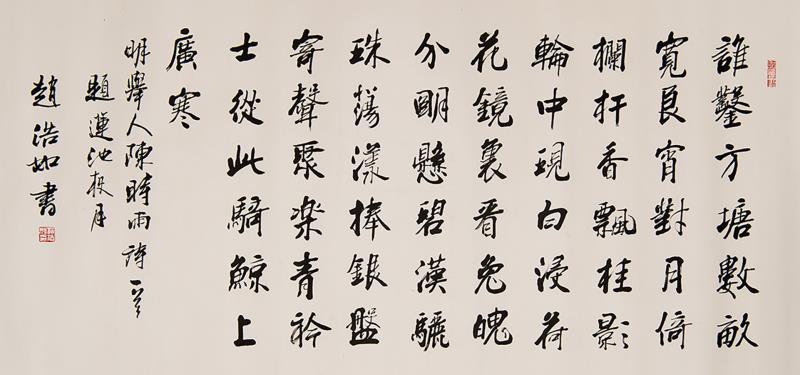 誰鑿方塘數畝
寬良宵對月倚
欄杆香飄桂影
輪中現白浸荷
花鏡裏看兔魄
分明懸碧漢驪
珠蕩漾捧銀盤
寄聲聚楽青衿
士從此騎鯨上
廣寒
明舉人陳時雨詩一首
題蓮池夜月
趙浩如書